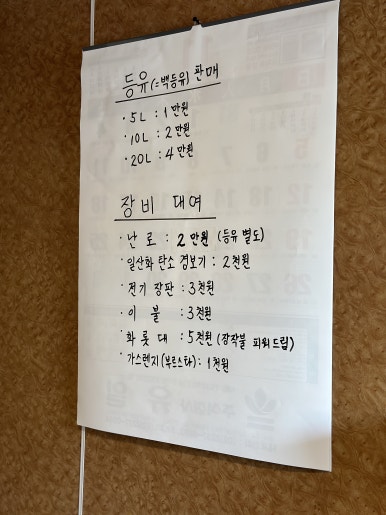 등유(=백등유) 판매
· 5L : 1만원
· 10L : 2만원
· 20L : 4만원
장비 대여
· 난로 : 2만원 (등유 별도)
· 일산화탄소 경보기 : 2천원
· 전기장판 : 3천원
· 이불 : 3천원
· 화롯대 : 5천원 (장작불 피워드림)
· 가스렌지(부르스타) : 1천원